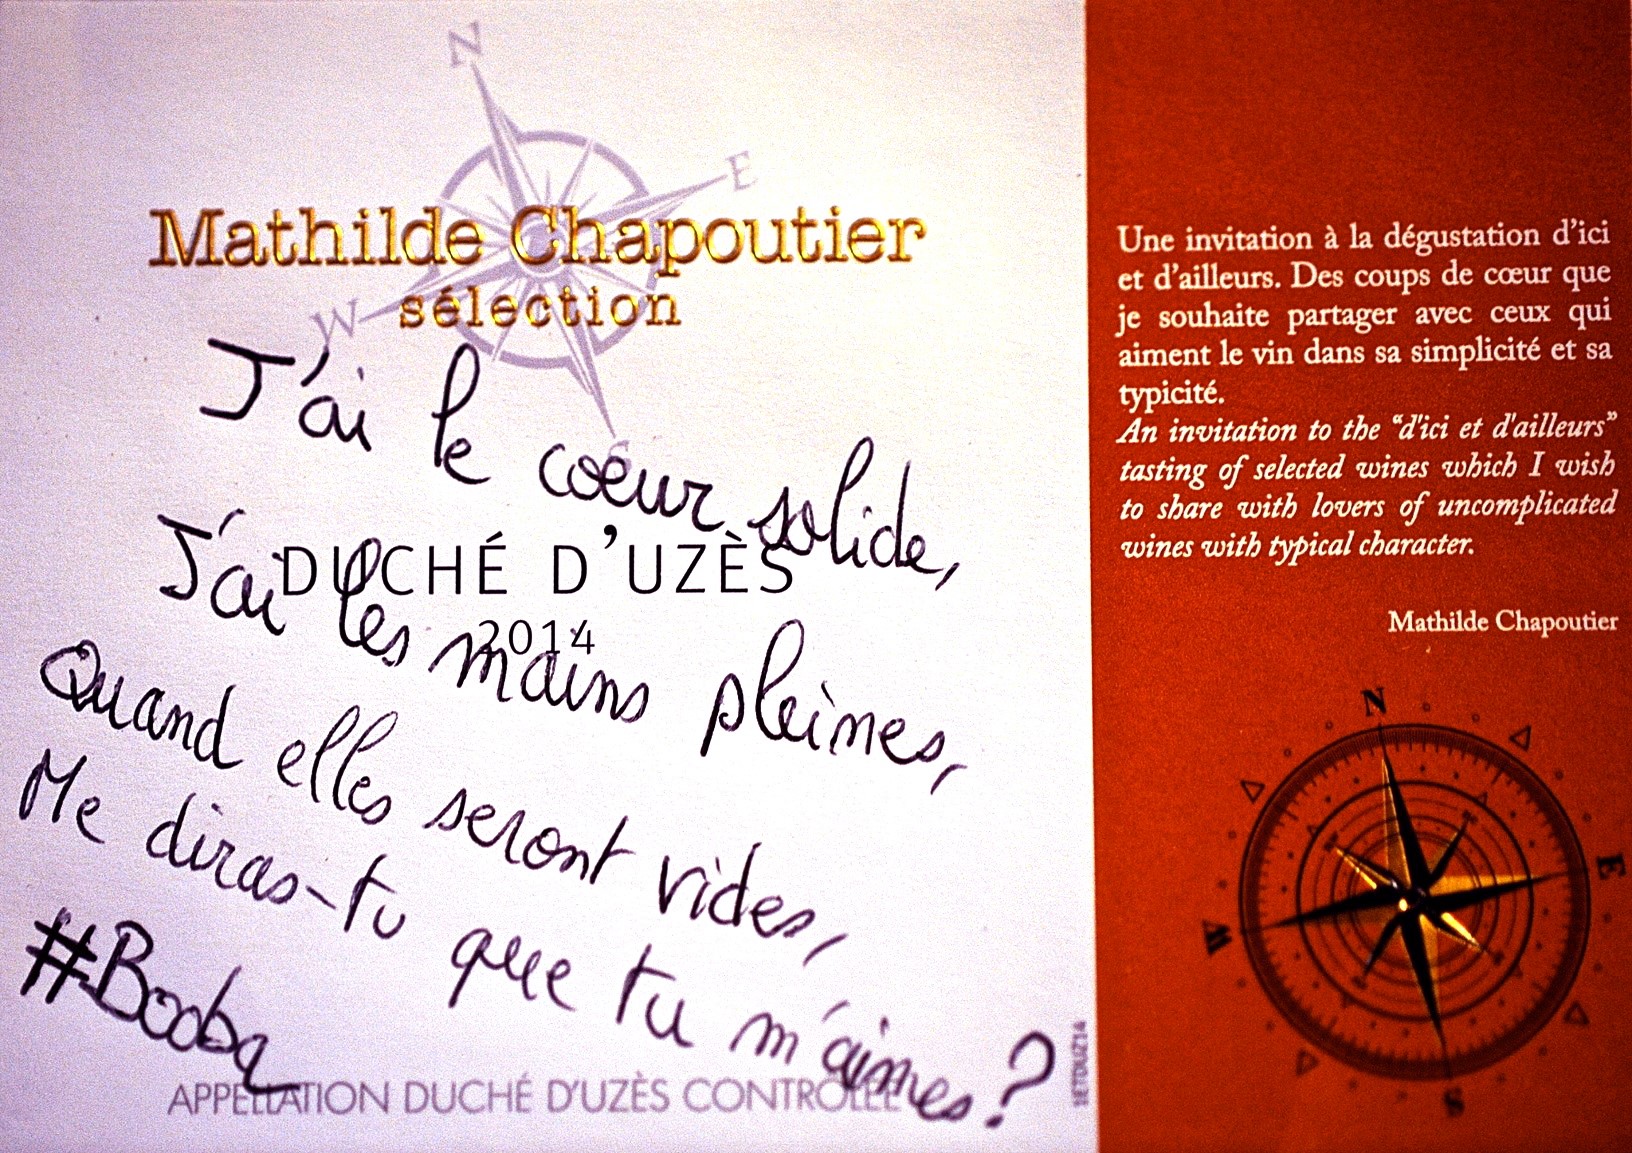 N
E
W
Mathilde Chapoutier
sélection
J'ai le cœur solide,
DUCHÉ D'UZÈS
J'ai les mains pleines,
2014
Quand elles seront vides,
Me diras-tu que tu m'aimes?
#Booba
APPELLATION DUCHÉ D'UZÈS CONTRÔLÉE
1ETDUZ14
Une invitation à la dégustation d'ici
et d'ailleurs. Des coups de cœur que
je souhaite partager avec ceux qui
aiment le vin dans sa simplicité et sa
typicité.
An invitation to the "d'ici et d'ailleurs"
tasting of selected wines which I wish
to share with lovers of uncomplicated
wines with typical character.
Mathilde Chapoutier
N
E
W
S